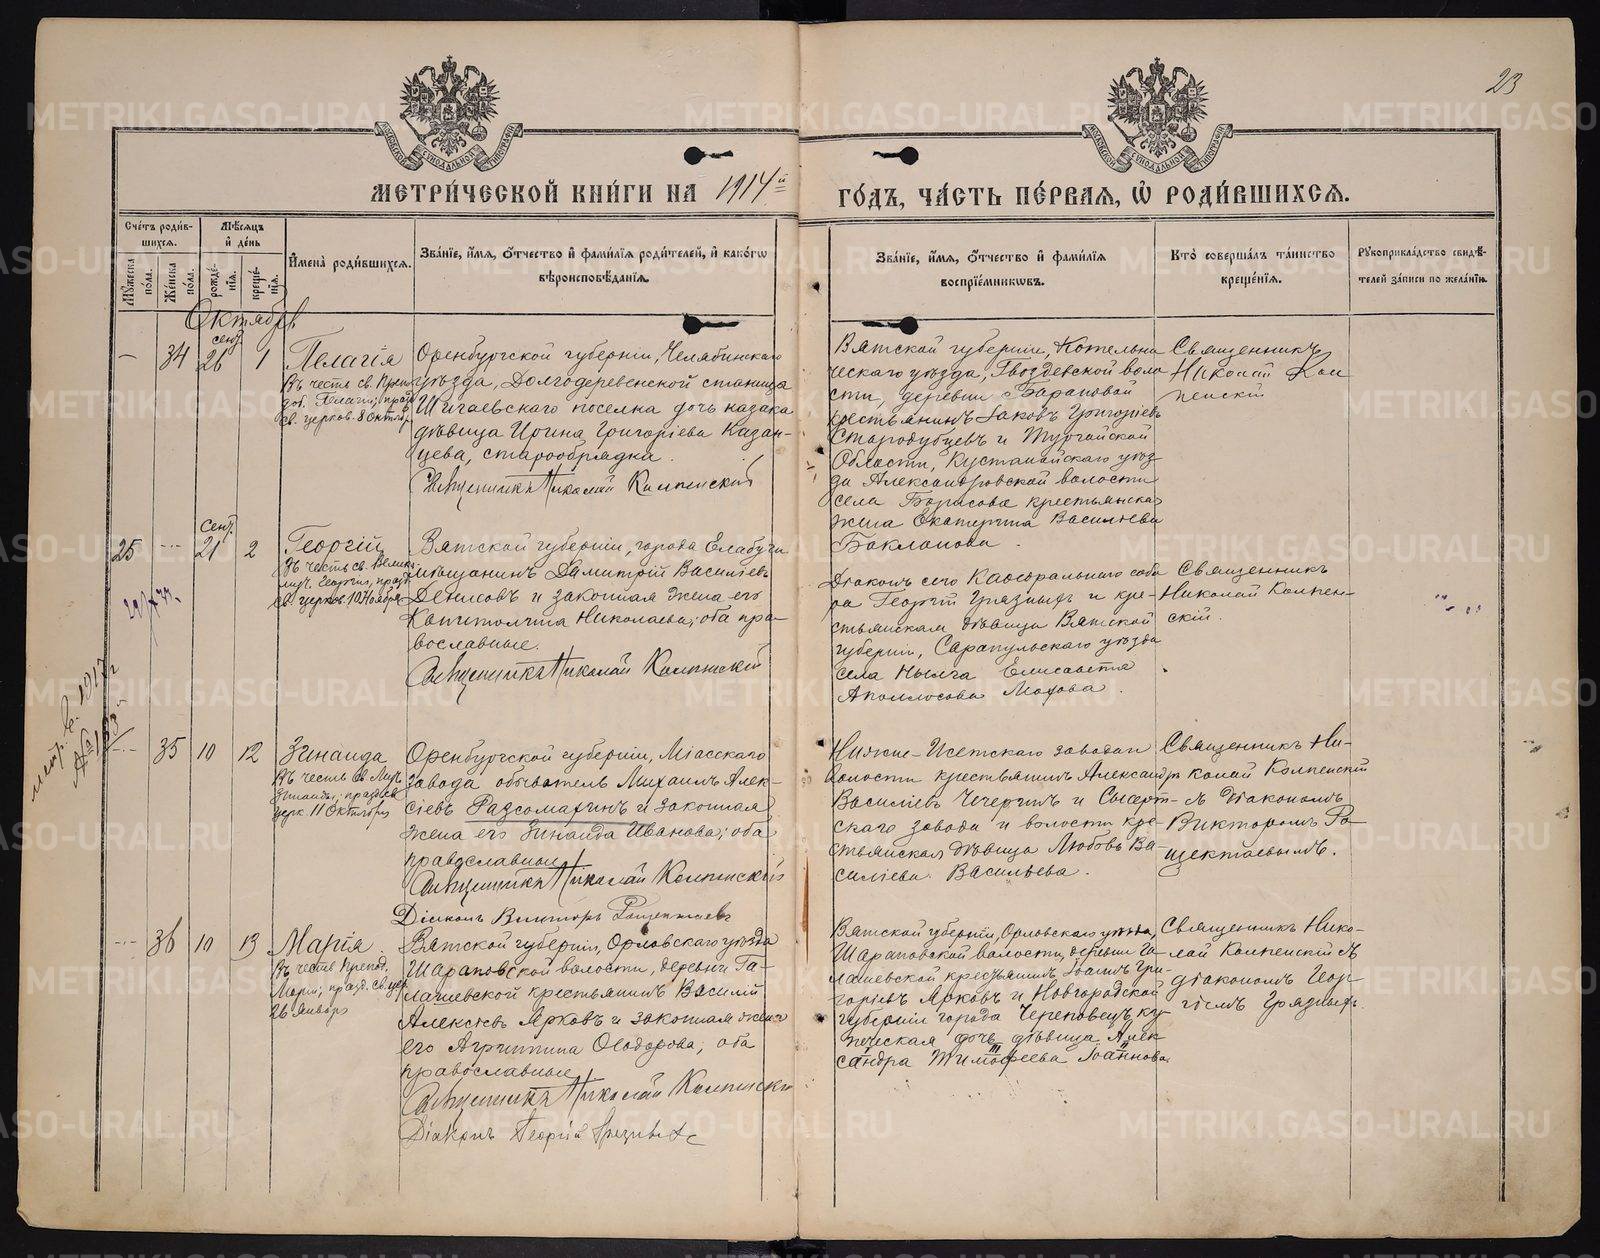 23
МОСКОВСКОЙ СУНОДАЛЬНОЙ ТИПОГРАФІИ
МОСКОВСКОЙ СУНОДАЛЬНОЙ ТИПОГРАФІИ
МЕТРИ́ЧЕСКОЙ КНИ́ГИ НА 1914й
ГО́ДЪ, ЧА́СТЬ ПЕ́РВАЯ, Ѡ РОДИ́ВШИХСЯ.
Сче́тъ роди́в-
шихся.
Му́жеска по́ла.
Же́нска по́ла.
Мѣ́сяцъ
и҆ де́нь
рожде́-
нія.
креще́-
нія.
И҆мена̀ роди́вшихся.
Зва́ніе, и҆́мя, ѻ҆́тчество и҆ фами́лїя роди́телей, и҆ како́гѡ
вѣроисповѣ́данїя.
Зва́ніе, и҆́мя, ѻ҆́тчество и҆ фами́лїя
воспрїе́мникѡвъ.
Кто̀ соверша́лъ та́инство
креще́нїя.
Рꙋкоприкла́дство свидѣ́-
телей за́писи по жела́нїю.
Октябрь
— 34 сент. 26 1
Пелагія
въ честь св. Препо-
доб. Пелагіи; празд.
св. церков. 8 Октября
Оренбургской губерніи, Челябинскаго
уѣзда, Долгодеревенской станицы
Шигаевскаго поселка дочь казака
дѣвица Ирина Григоріева Казан-
цева, старообрядка.
Священникъ Николай Колпенскій
Вятской губерніи, Котельни
ческаго уѣзда, Гвоздевской воло
сти, деревни Барановой
крестьянинъ Іаковъ Григоріевъ
Стародубцевъ и Тургайской
Области, Кустанайскаго уѣз-
да Александровской волости
села Борисова крестьянская
жена Екатерина Васильева
Бакланова.
Священникъ
Николай Кол
пенскій
25 — сент. 21 2
Георгій
въ честь св. Велико-
муч. Георгія, празд.
св. церков. 10 Ноября
Вятской губерніи, города Елабуги
мѣщанинъ Димитрій Василіевъ
Денисовъ и законная жена его
Капитолина Николаева; оба пра-
вославные.
Священникъ Николай Колпенскій
Діаконъ сего Каѳедральнаго собо
ра Георгій Грязныхъ и кре-
стьянская дѣвица Вятской
губерніи, Сарапульскаго уѣзда
села Нылга Елисавета
Аполлосова Мохова.
Священникъ
Николай Колпен-
скій.
метр. в. 1917 г
№ 133
— 35 10 12
Зинаида
въ честь св. Муч.
Зинаиды; празд. св.
церк. 11 Октября
Оренбургской губерніи, Міасскаго
завода обыватель Михаилъ Алек-
сіевъ Разсомахинъ и законная
жена его Зинаида Иванова; оба
православные
Священникъ Николай Колпенскій
Діаконъ Викторъ Ращектаевъ
Нижне-Исетскаго завода и
волости крестьянинъ Александръ
Василіевъ Чечеринъ и Сысерт-
скаго завода и волости кре-
стьянская дѣвица Любовь Ва-
силіева Васильева.
Священникъ Ни-
колай Колпенскій
съ діакономъ
Викторомъ Ра-
щектаевымъ.
— 36 10 13
Марія.
въ честь препод.
Маріи; празд. св. цер.
26 января
Вятской губерніи, Орловскаго уѣзда
Шарановской волости, деревни Га-
лашевской крестьянинъ Василій
Алексіевъ Ярковъ и законная жена
его Агриппина Ѳеодорова; оба
православные
Священникъ Николай Колпенскій
Діаконъ Георгій Грязныхъ
Вятской губерніи, Орловскаго уѣзда,
Шарановской волости, деревни Га-
лашевской крестьянинъ Іоаннъ Гри-
горіевъ Ярковъ и Новгородской
губерніи города Череповецъ ку-
печеская дочь дѣвица Алек
сандра Тимоѳеева Іоаннова.
Священникъ Нико-
лай Колпенскій съ
діакономъ Геор-
гіемъ Грязныхъ